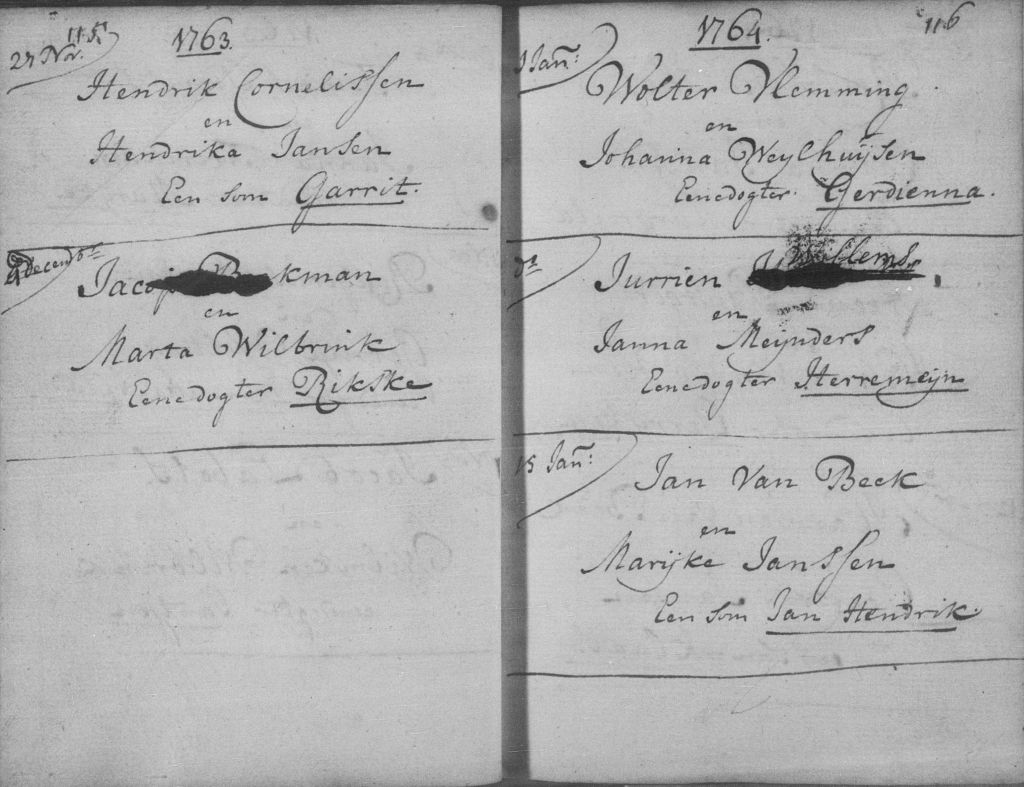 115
1763.
27 Nov.
Hendrik Cornelissen
en
Hendrika Jansen
Een som Garrit.
4 decemb:
kman
en
Marta Wilbrink
Eene dogter Rikske
116
1764.
1 Jan:
Wolter Vlemming
en
Johanna Weylhuijsen
Eene dogter. Gerdienna.
do
Jurrien Willems
en
Janna Meijnders
Eene dogter Herremeijn
15 Jan:
Jan Van Beek
en
Marijke Janssen
Een som Jan Hendrik.